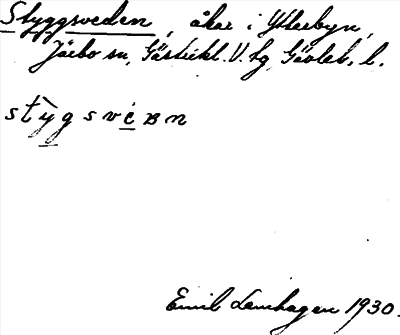 Styggsveden, åker i Ytterbyn,
Järbo sn, Gästrikl. V. tg, Gävleb. l.
stỳgsvèɞn
Emil Lenhagen 1930.